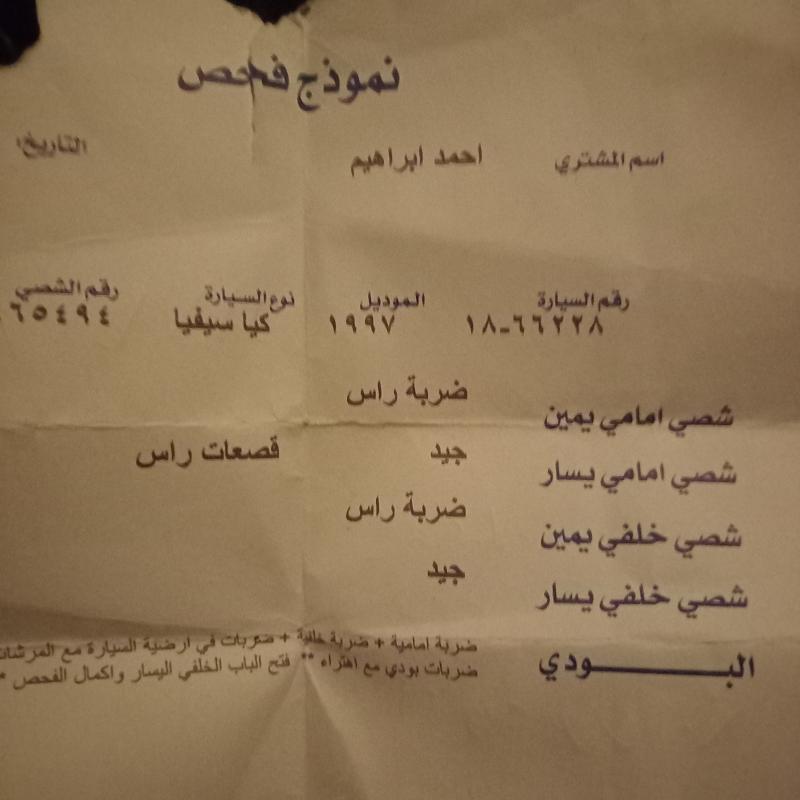 نموذج فحص
اسم المشتري احمد ابراهيم التاريخ:
رقم السيارة الموديل نوع السيارة رقم الشصي
١٨-٦٦٢٢٨ ١٩٩٧ كيا سيفيا ٦٥٤٩٤
شصي امامي يمين ضربة راس
شصي امامي يسار جيد قصعات راس
شصي خلفي يمين ضربة راس
شصي خلفي يسار جيد
البـــــــودي ضربة امامية + ضربة خلفية + ضربات في ارضية السيارة مع المرشات
ضربات بودي مع اهتراء ** فتح الباب الخلفي اليسار واكمال الفحص *